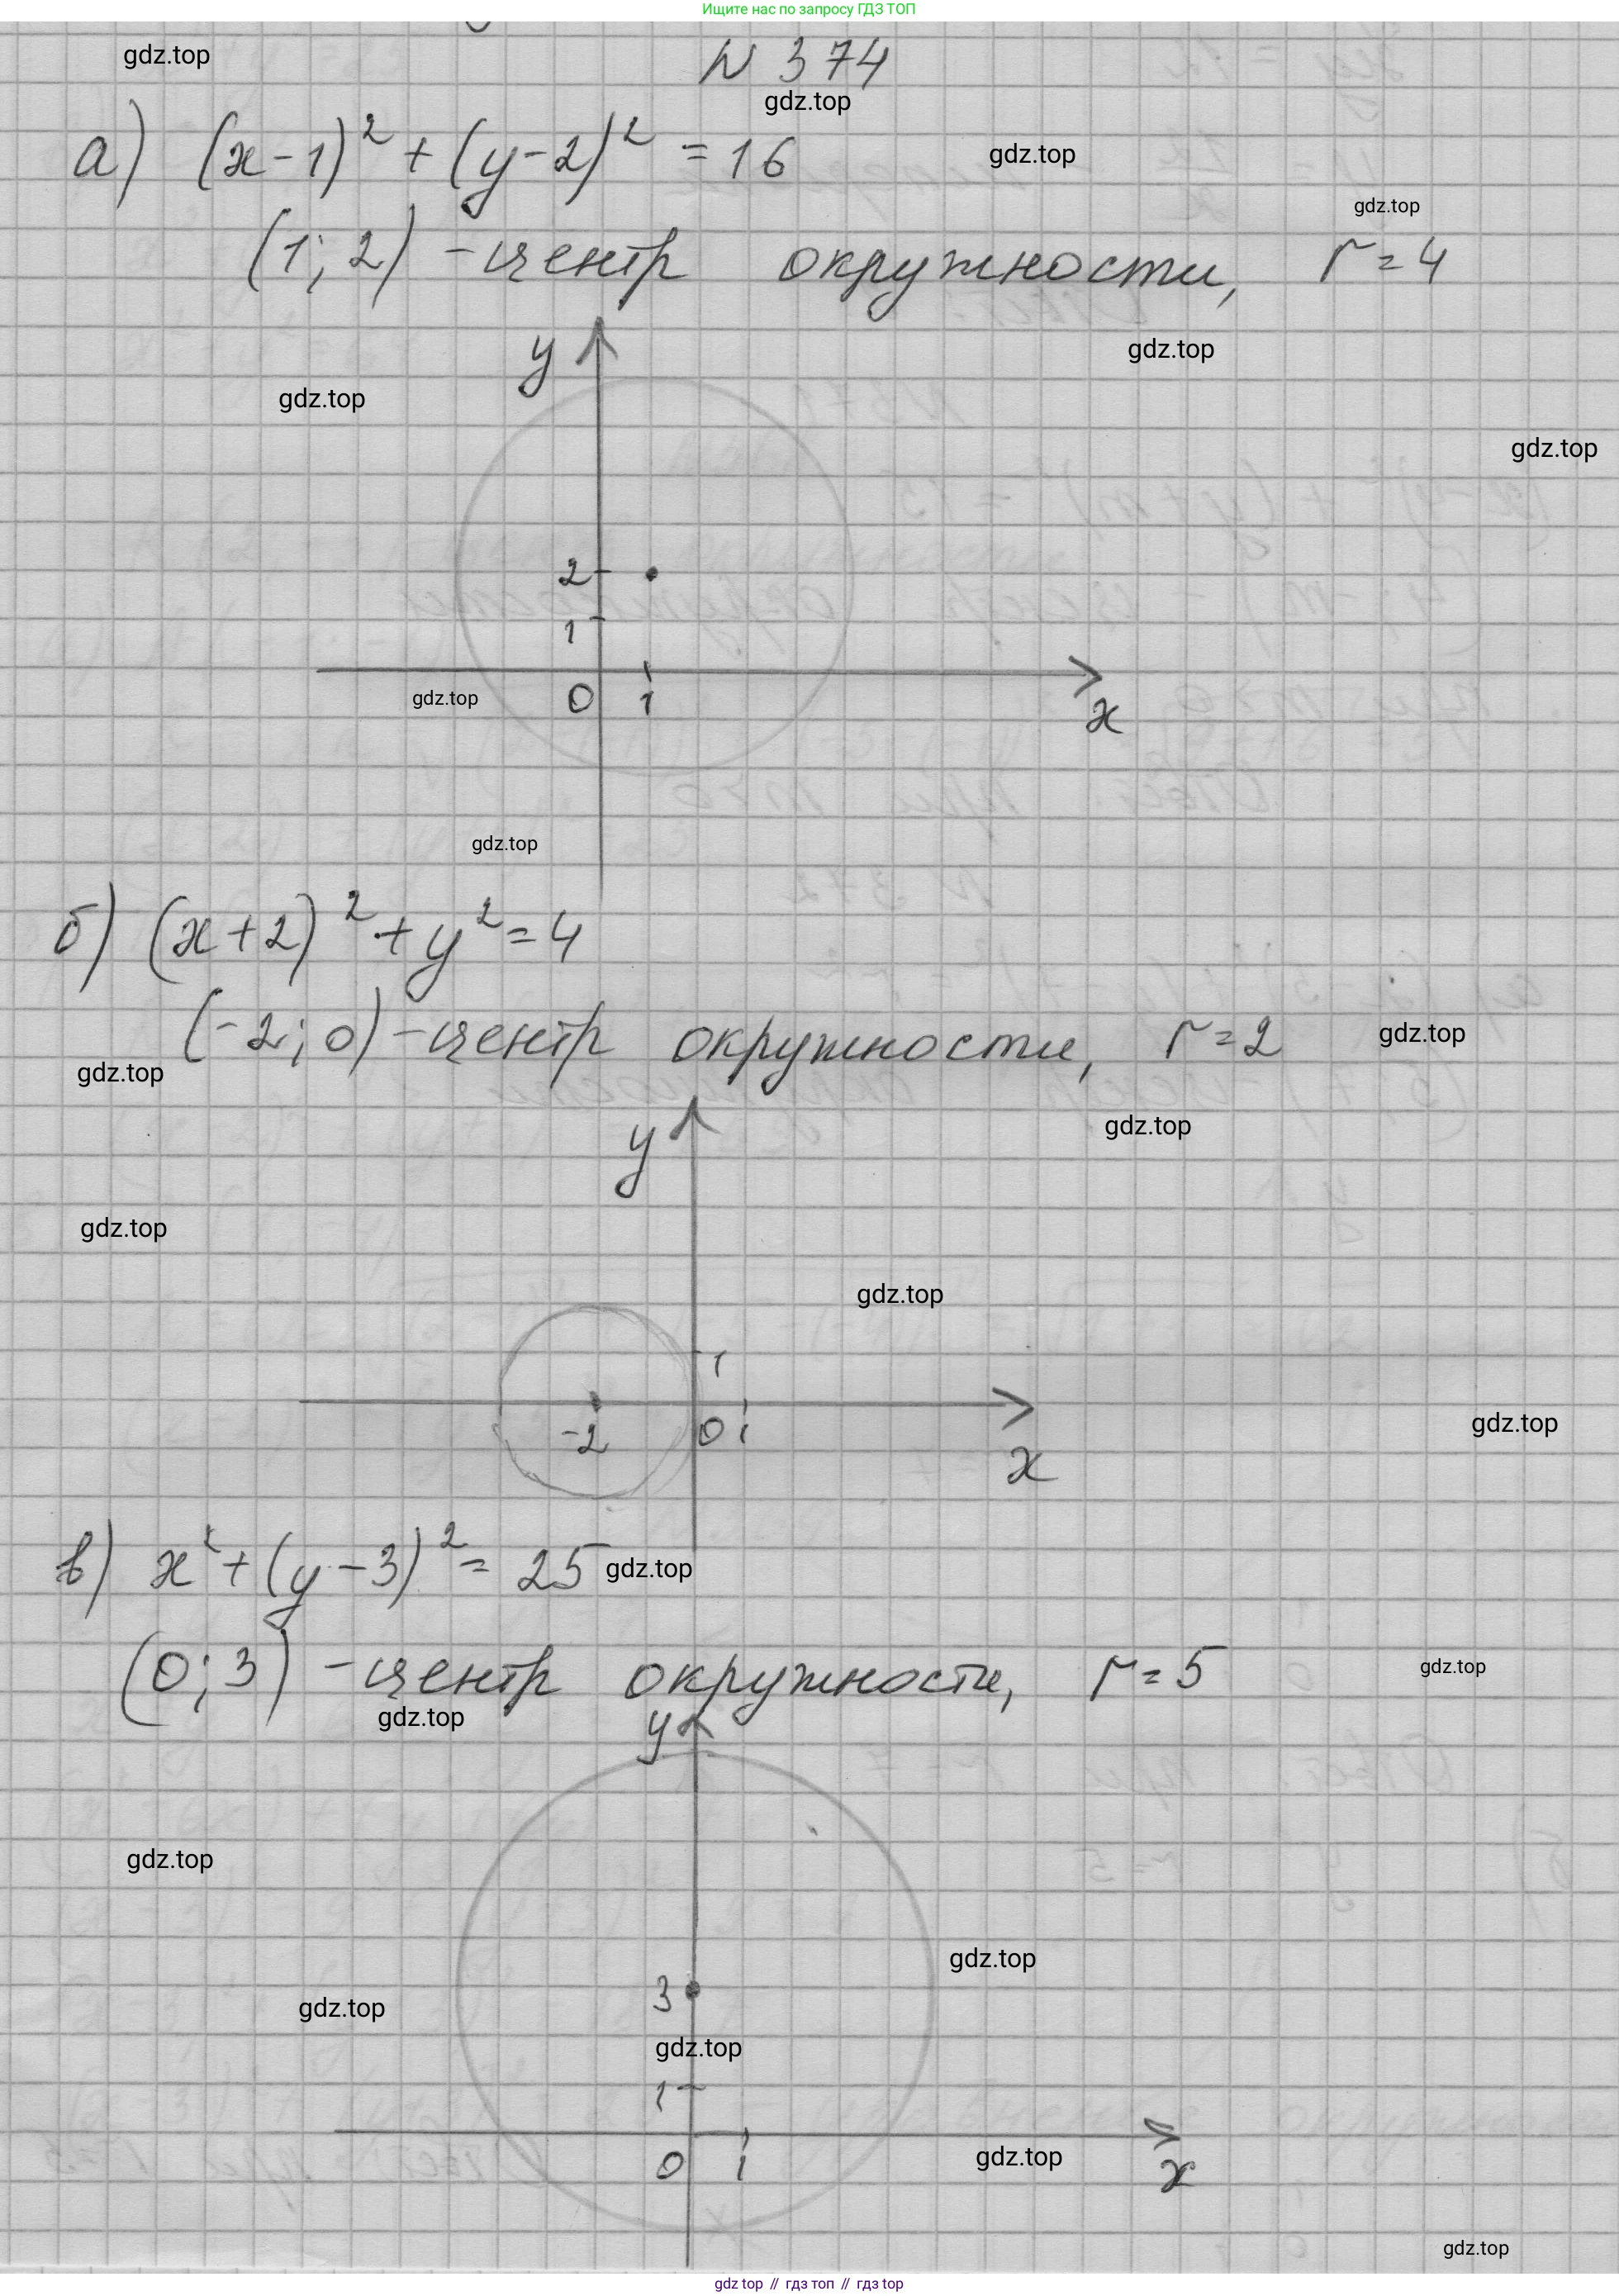 Ищите нас по запросу ГДЗ ТОП
N 374
gdz.top
gdz.top
а) (x-1)² + (y-2)² = 16
gdz.top
gdz.top
(1; 2) - центр окружности, r = 4
y
gdz.top
gdz.top
gdz.top
2
1
0 1
x
gdz.top
gdz.top
б) (x+2)² + y² = 4
(-2; 0) - центр окружности, r = 2
gdz.top
gdz.top
y
gdz.top
gdz.top
gdz.top
1
-2 0 1
x
gdz.top
в) x² + (y-3)² = 25
gdz.top
(0; 3) - центр окружности, r = 5
gdz.top
gdz.top
y
gdz.top
gdz.top
3
gdz.top
gdz.top
1
0 1
x
gdz.top
gdz.top
gdz top // гдз топ // гдз top